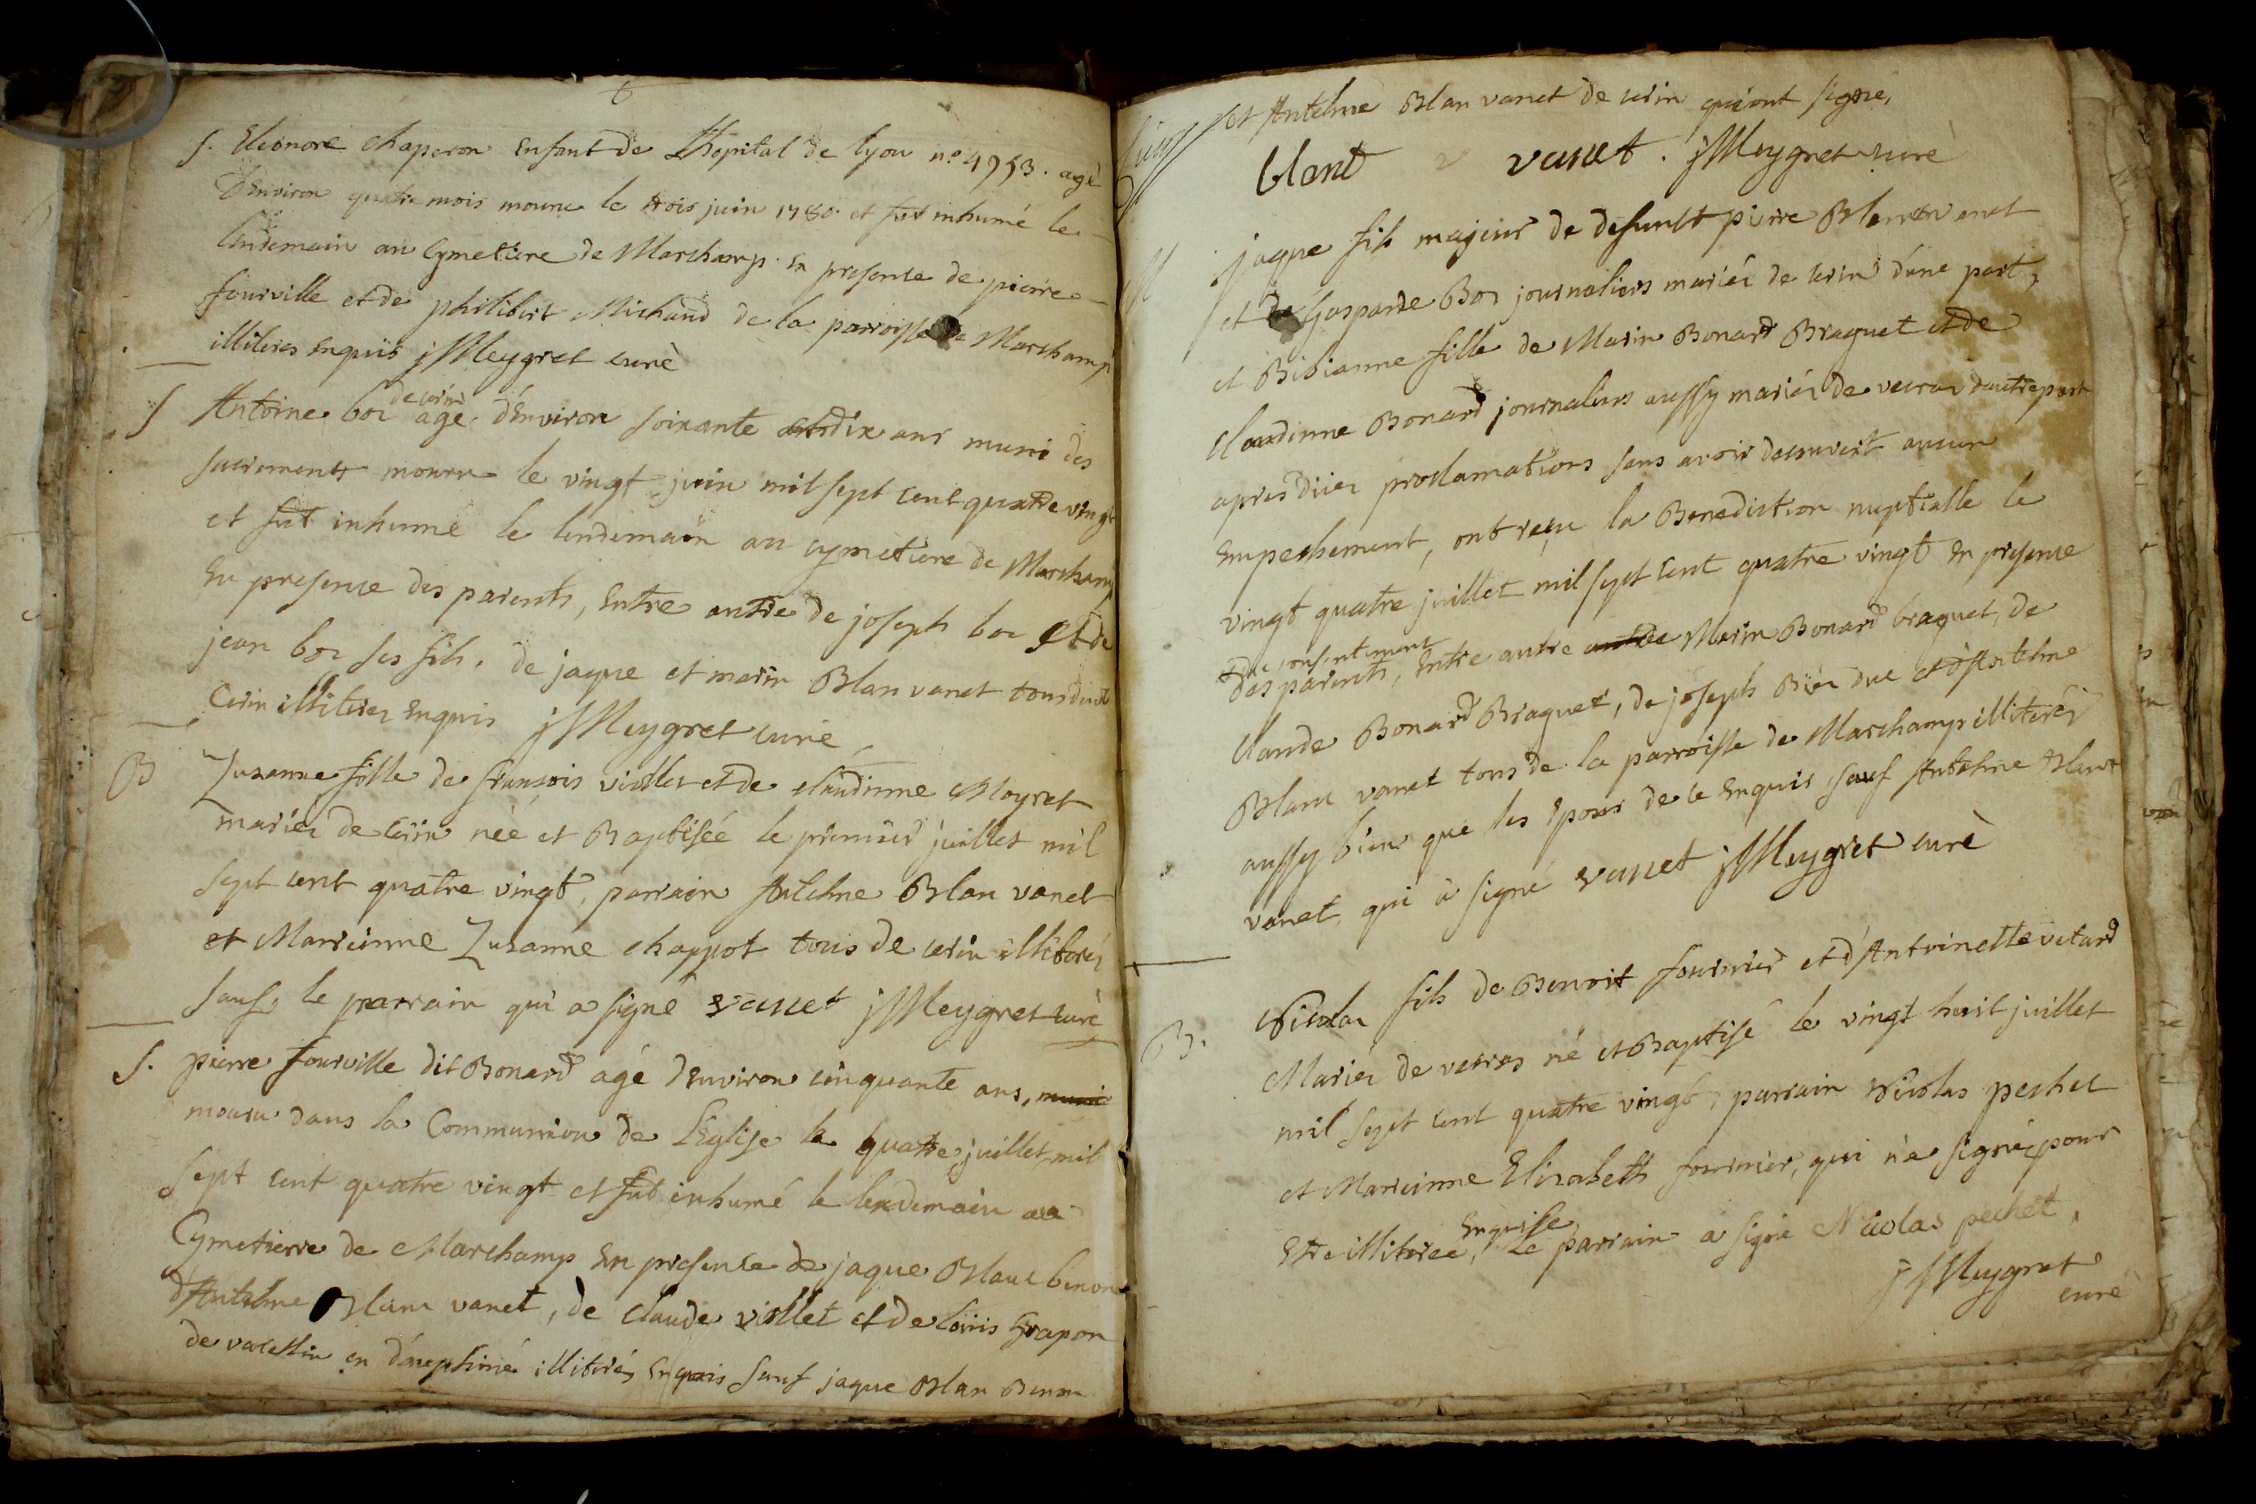 6
S. Eleonore Chaperon Enfant de Lhôpital de lyon n.° 4953. agé
D'Environ quatre mois mouru le trois juin 1780. et fut inhumé le
lendemain au Cymetiere de Marchamp. En presence de pierre
fourville et de philibert Michaud de la parroisse de Marchamp
illiteres Enquis jMeygret curè
S Antoine boz de cerin agé d'Environ soixante et dix ans muni des
sacrements mouru le vingt juin mil sept cent quatre vingt
et fut inhumé le lendemain au cymetiere de Marchamp
En presence des parents, Entre autre de joseph boz et de
jean boz ses fils, de jaque et marin Blan vanet tous de
Cerin illiteres Enquis jMeygret curé
B Zuzanne fille de françois viollet et de claudinne Moyret
mariéz de Cerin néé et Baptiséé le premier juillet mil
sept cent quatre vingt, parrain Antelme Blan vanet
et Marrienne Zuzanne chappot tous de cerin illiteréz
sauf le parrain qui a signé vanet jMeygret curé
S. pierre fourville dit Bonard agé d'Environ cinquante ans, muni
mouru dans la Communion de L'Eglise le quatre juillet mil
sept cent quatre vingt et fut inhumé le lendemain au
Cymetierre de Marchamp En presence de jaque Blanc benon
d'Antelme Blanc vanet, de claude viollet et de loüis Grapon
de en dauphiné illiterés Enquis sauf jaque Blan Benon
et Antelme Blan vanet de cerin qui ont signe,
blant vanet. jMeygret curè
M jaque fils majeur de defunct pierre Blan vanet
et de Gasparde Boz journaliers mariéz de cerin d'une part,
et Bibianne fille de Marin Bonard Braquet et de
Claudinne Bonard journaliers aussy mariéz de vecraz d'autre part
apres dües proclamations sans avoir decouvert aucun
Empechement, ont reçu la Benediction nuptialle le
vingt quatre juillet mil sept cent quatre vingt En presence
et du consentement
des parents, Entre autre de Marin Bonard braquet, de
Claude Bonard Braquet, de joseph duc et d'Antelme
Blanc vanet tous de la parroisse de Marchamp illiteréz
aussy bien que les Epoux de ce Enquis sauf Antelme Blanc
vanet, qui à signé vanet jMeygret curè
B. Nicolas fils de Benoit fournier et d'Antoinette vetard
Mariéz de vecras né et Baptisé le vingt huit juillet
mil sept cent quatre vingt, parrain Nicolas pechet
et Marienne Elizabeth fournier, qui n'a signé pour
Etre illiteree, Enquise, Le parrain a signé Nicolas pechet,
jMeygret
curé